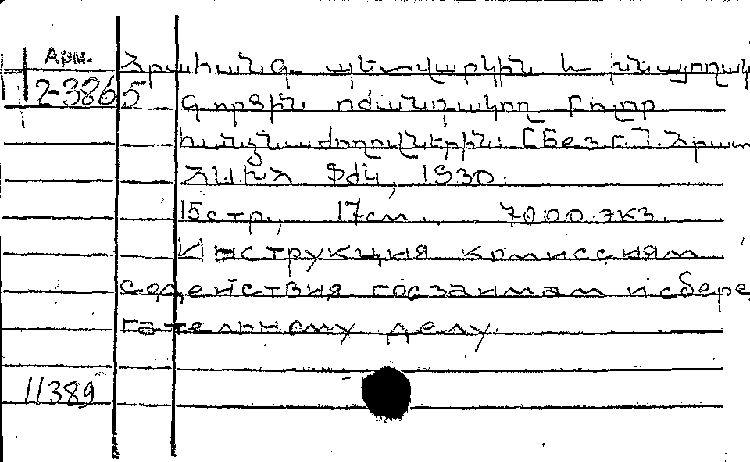 Арм.
2-3865
Հրահանգ պետվարկին և խնայողակ
գործին օժանդակող բոլոր
հանձնաժողովներին: [Без г.] Հրատ
ՀՍԽՀ ՖԺԿ, 1930.
15стр., 17см., 7000 экз.
Инструкция комиссиям
содействия госзаимам и сбере
гательному делу.
11389